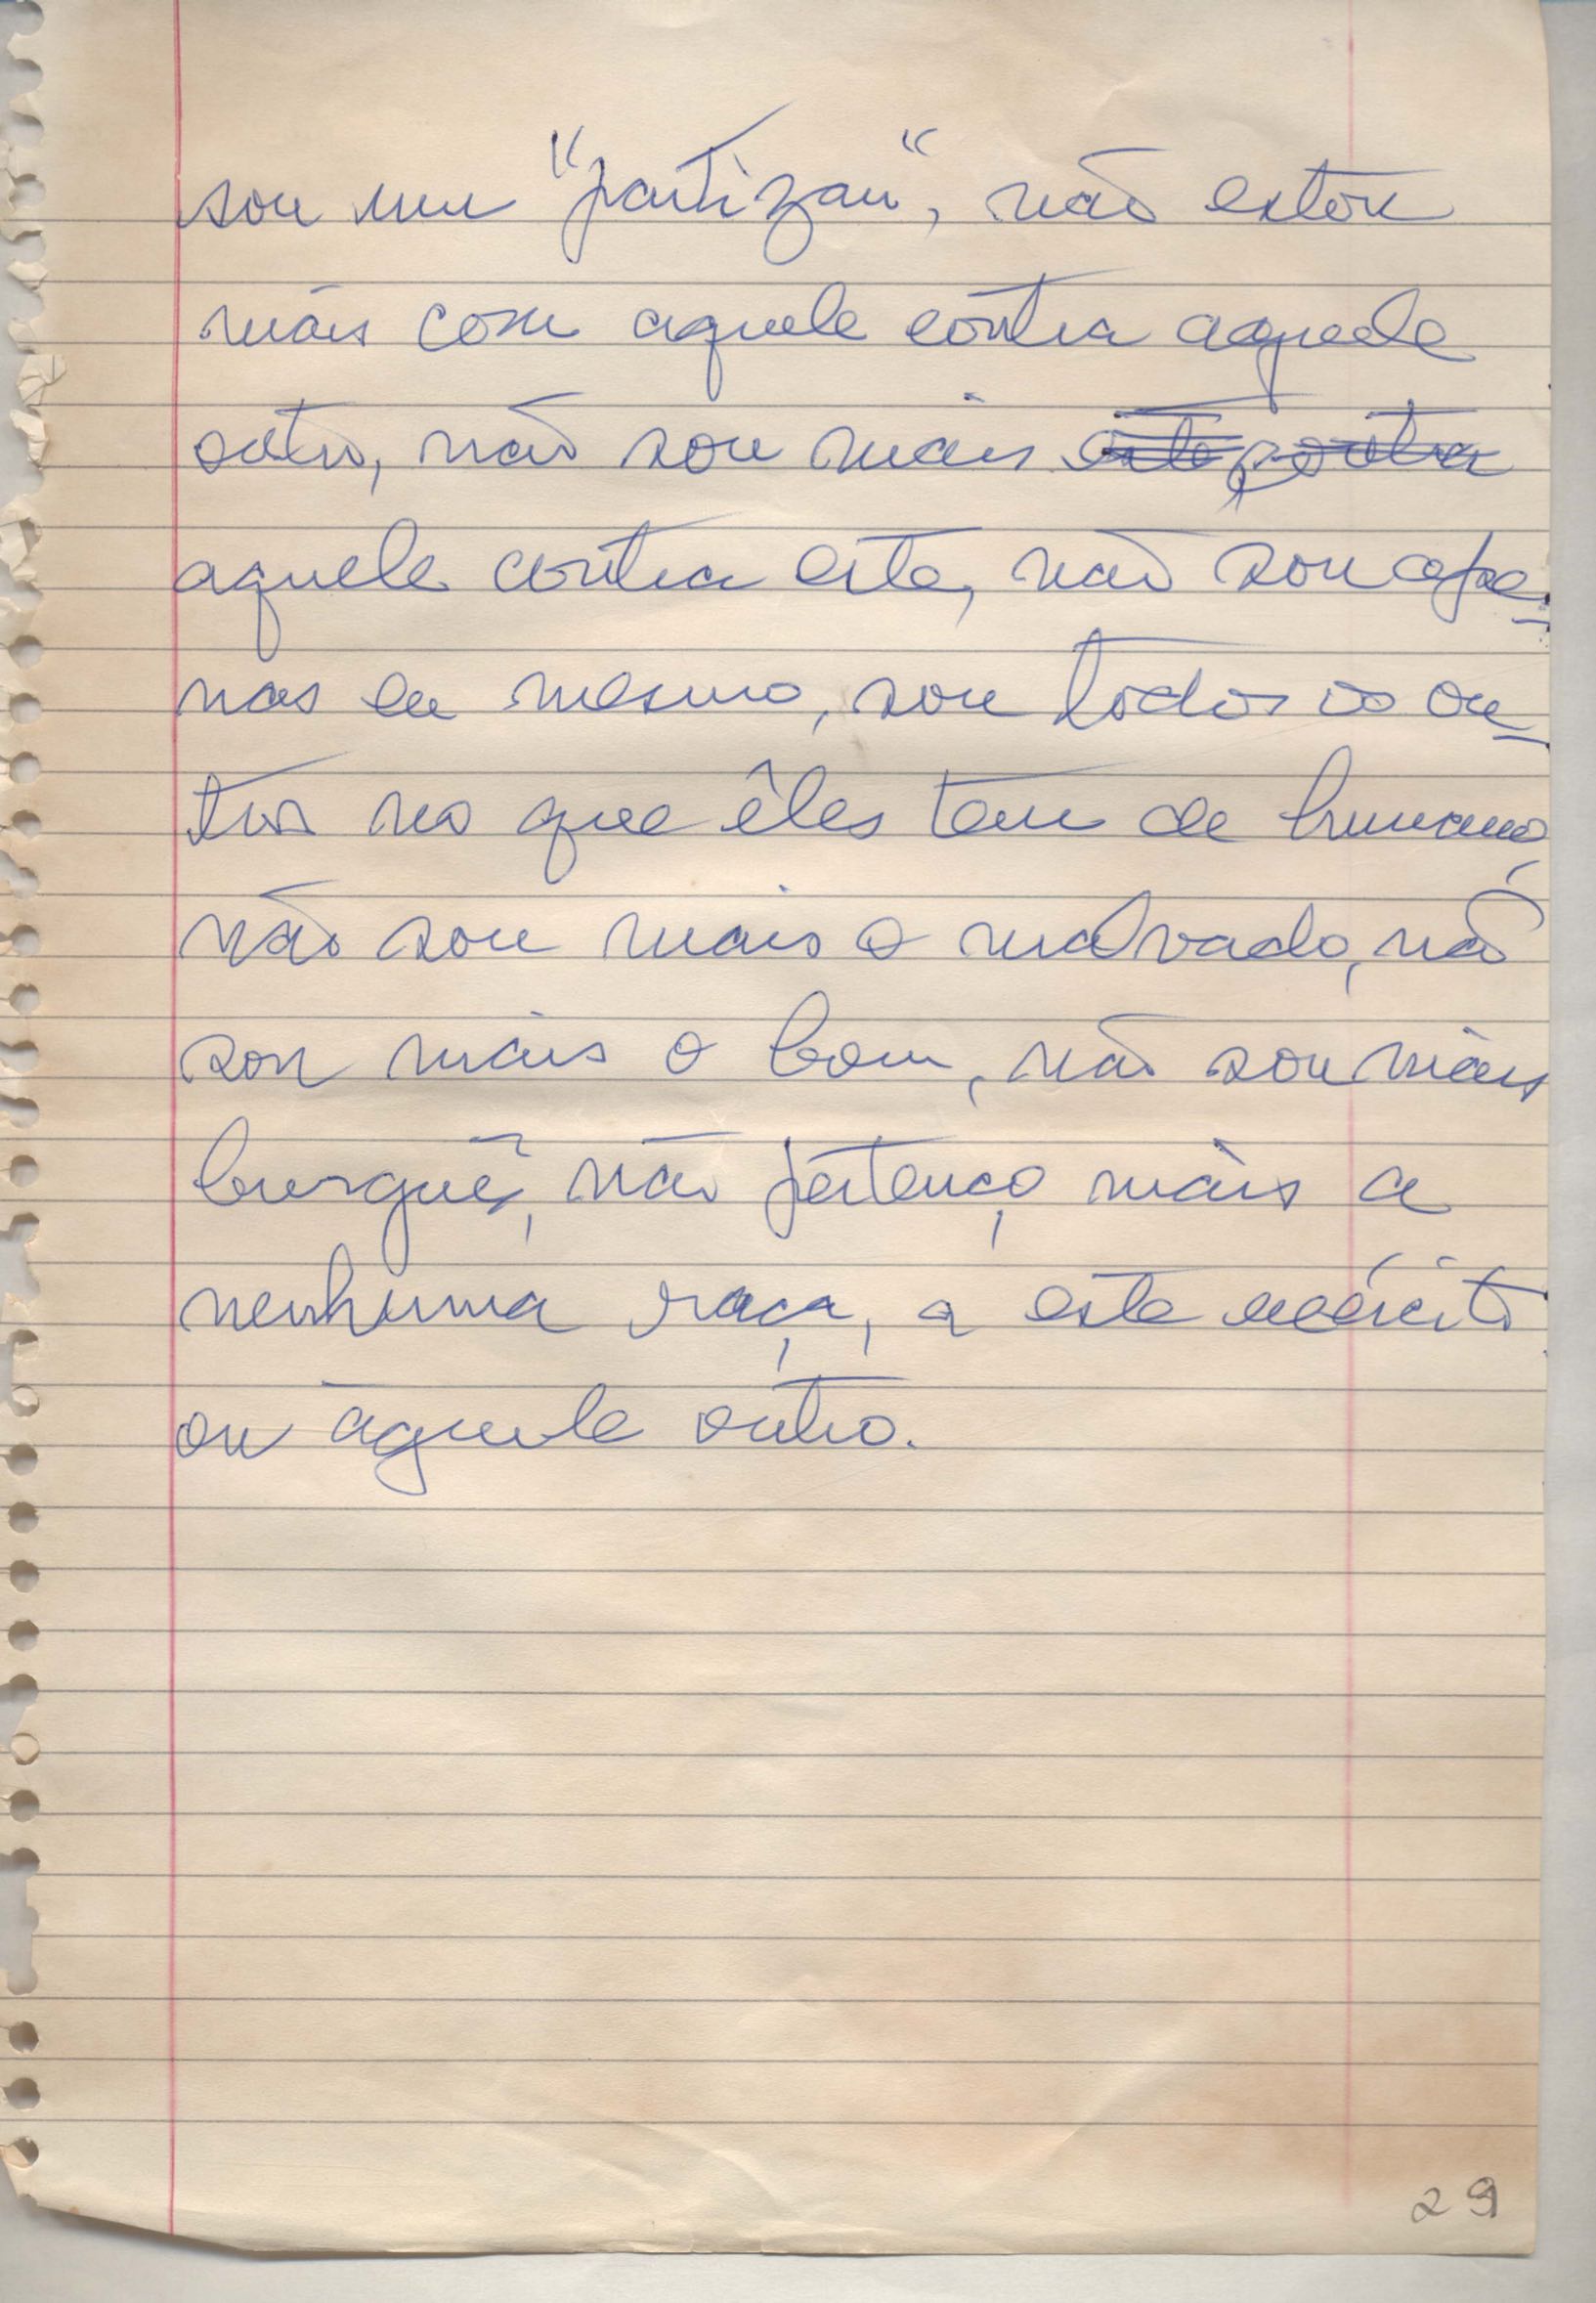 sou um "partizan", não estou
mais com aquele contra aquele
outro, não sou mais este contra
aquele contra este, não sou ape-
nas eu mesmo, sou todos os ou-
tros no que êles tem de humano,
não sou mais o malvado, não
sou mais o bom, não sou mais
burguês, não pertenço mais a
nenhuma raça, a este exército
ou àquele outro.
29